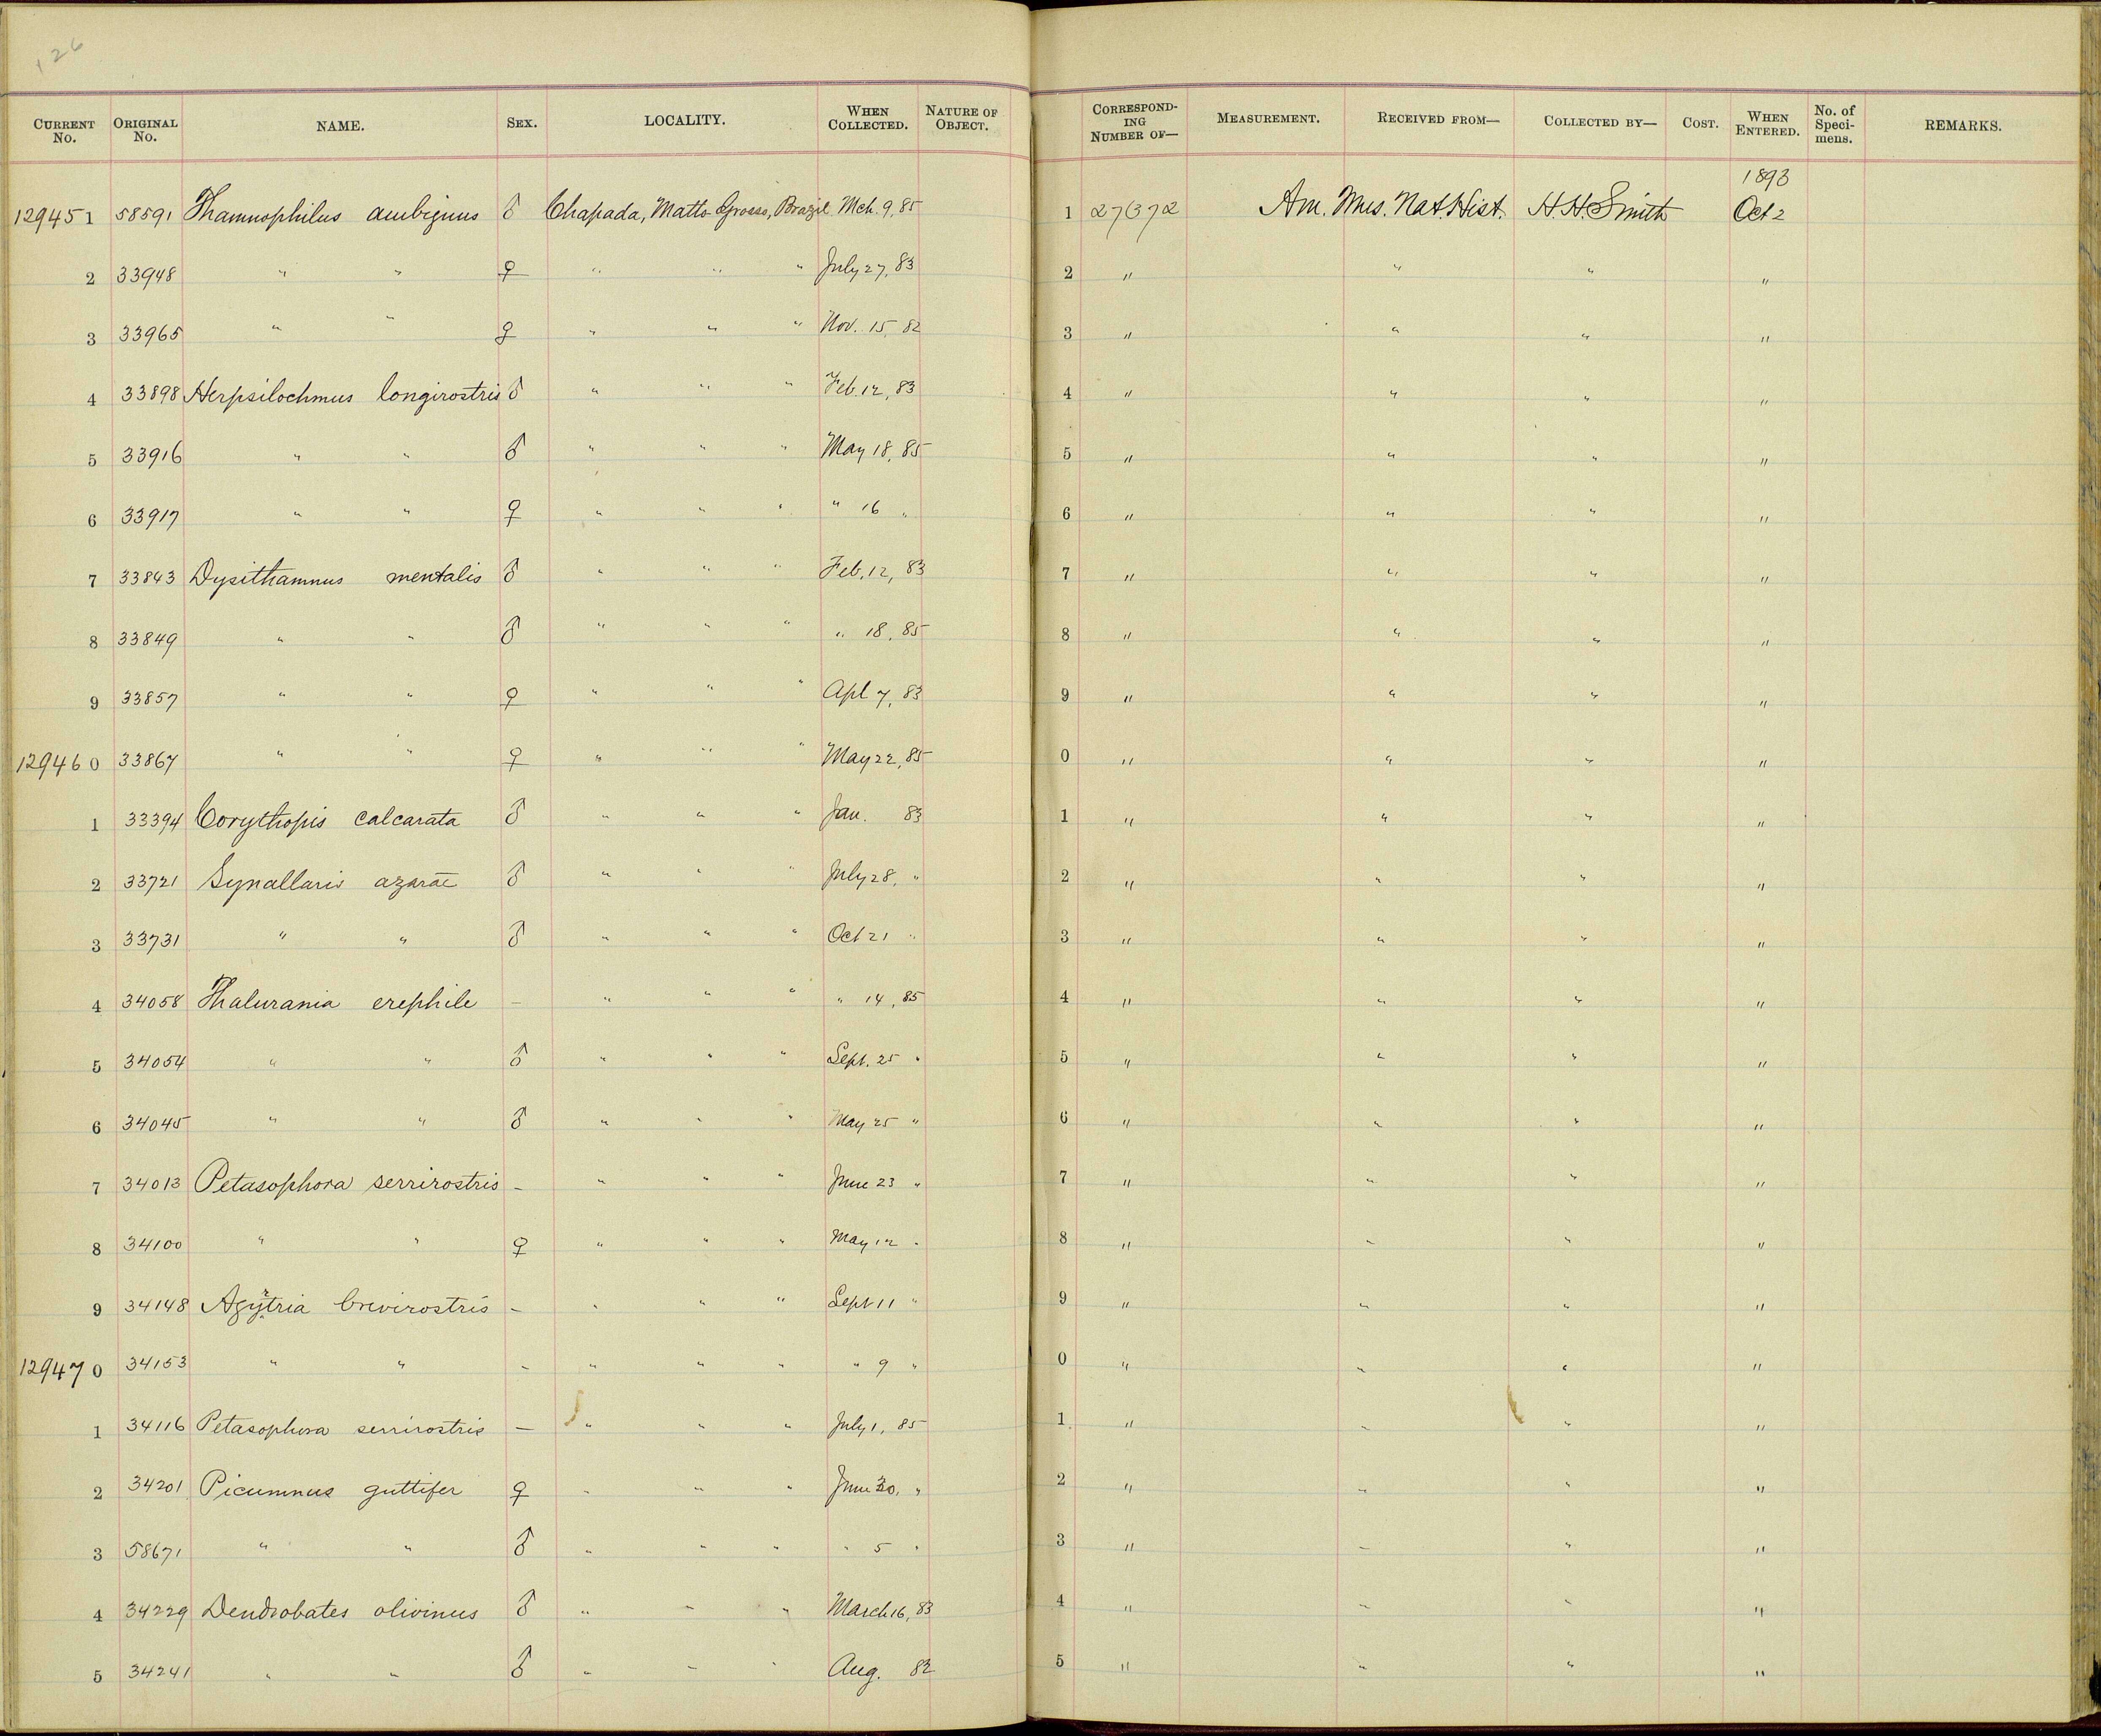 126
CURRENT No. ORIGINAL No. NAME. SEX. LOCALITY. WHEN COLLECTED. NATURE OF OBJECT. CORRESPONDING NUMBER OF— MEASUREMENT. RECEIVED FROM— COLLECTED BY— COST. WHEN ENTERED. No. of Specimens. REMARKS.
1893
129451 58591 Thamnophilus ambiguus ♂ Chapada, Matto Grosso, Brazil Mch. 9, 85 1 27372 Am. Mus. Nat. Hist. H.H. Smith Oct 2
2 33948 " " ♀ " " " July 27, 83 2 " " " "
3 33965 " " ♀ " " " Nov. 15, 82 3 " " " "
4 33898 Herpsilochmus longirostris ♂ " " " Feb. 12, 83 4 " " " "
5 33916 " " ♂ " " " May 18, 85 5 " " " "
6 33917 " " ♀ " " " " 16 " 6 " " " "
7 33843 Dysithamnus mentalis ♂ " " " Feb. 12, 83 7 " " " "
8 33849 " " ♂ " " " " 18, 85 8 " " " "
9 33857 " " ♀ " " " Apl 7, 83 9 " " " "
129460 33867 " " ♀ " " " May 22, 85 0 " " " "
1 33394 Corythopis calcarata ♂ " " " Jan. 83 1 " " " "
2 33721 Synallaxis azarae ♂ " " " July 28, " 2 " " " "
3 33731 " " ♂ " " " Oct 21 " 3 " " " "
4 34058 Thalurania erephile – " " " " 14, 85 4 " " " "
5 34054 " " ♂ " " " Sept. 25 " 5 " " " "
6 34045 " " ♂ " " " May 25 " 6 " " " "
7 34013 Petasophora serrirostris – " " " June 23 " 7 " " " "
8 34100 " " ♀ " " " May 12 " 8 " " " "
9 34148 Agyrtria brevirostris – " " " Sept 11 " 9 " " " "
129470 34153 " " – " " " " 9 " 0 " " " "
1 34116 Petasophora serrirostris – " " " July 1, 85 1 " " " "
2 34201 Picumnus guttifer ♀ " " " June 30, " 2 " " " "
3 58671 " " ♂ " " " " 5 " 3 " " " "
4 34229 Dendrobates olivinus ♂ " " " March 16, 83 4 " " " "
5 34241 " " ♂ " " " Aug. 82 5 " " " "